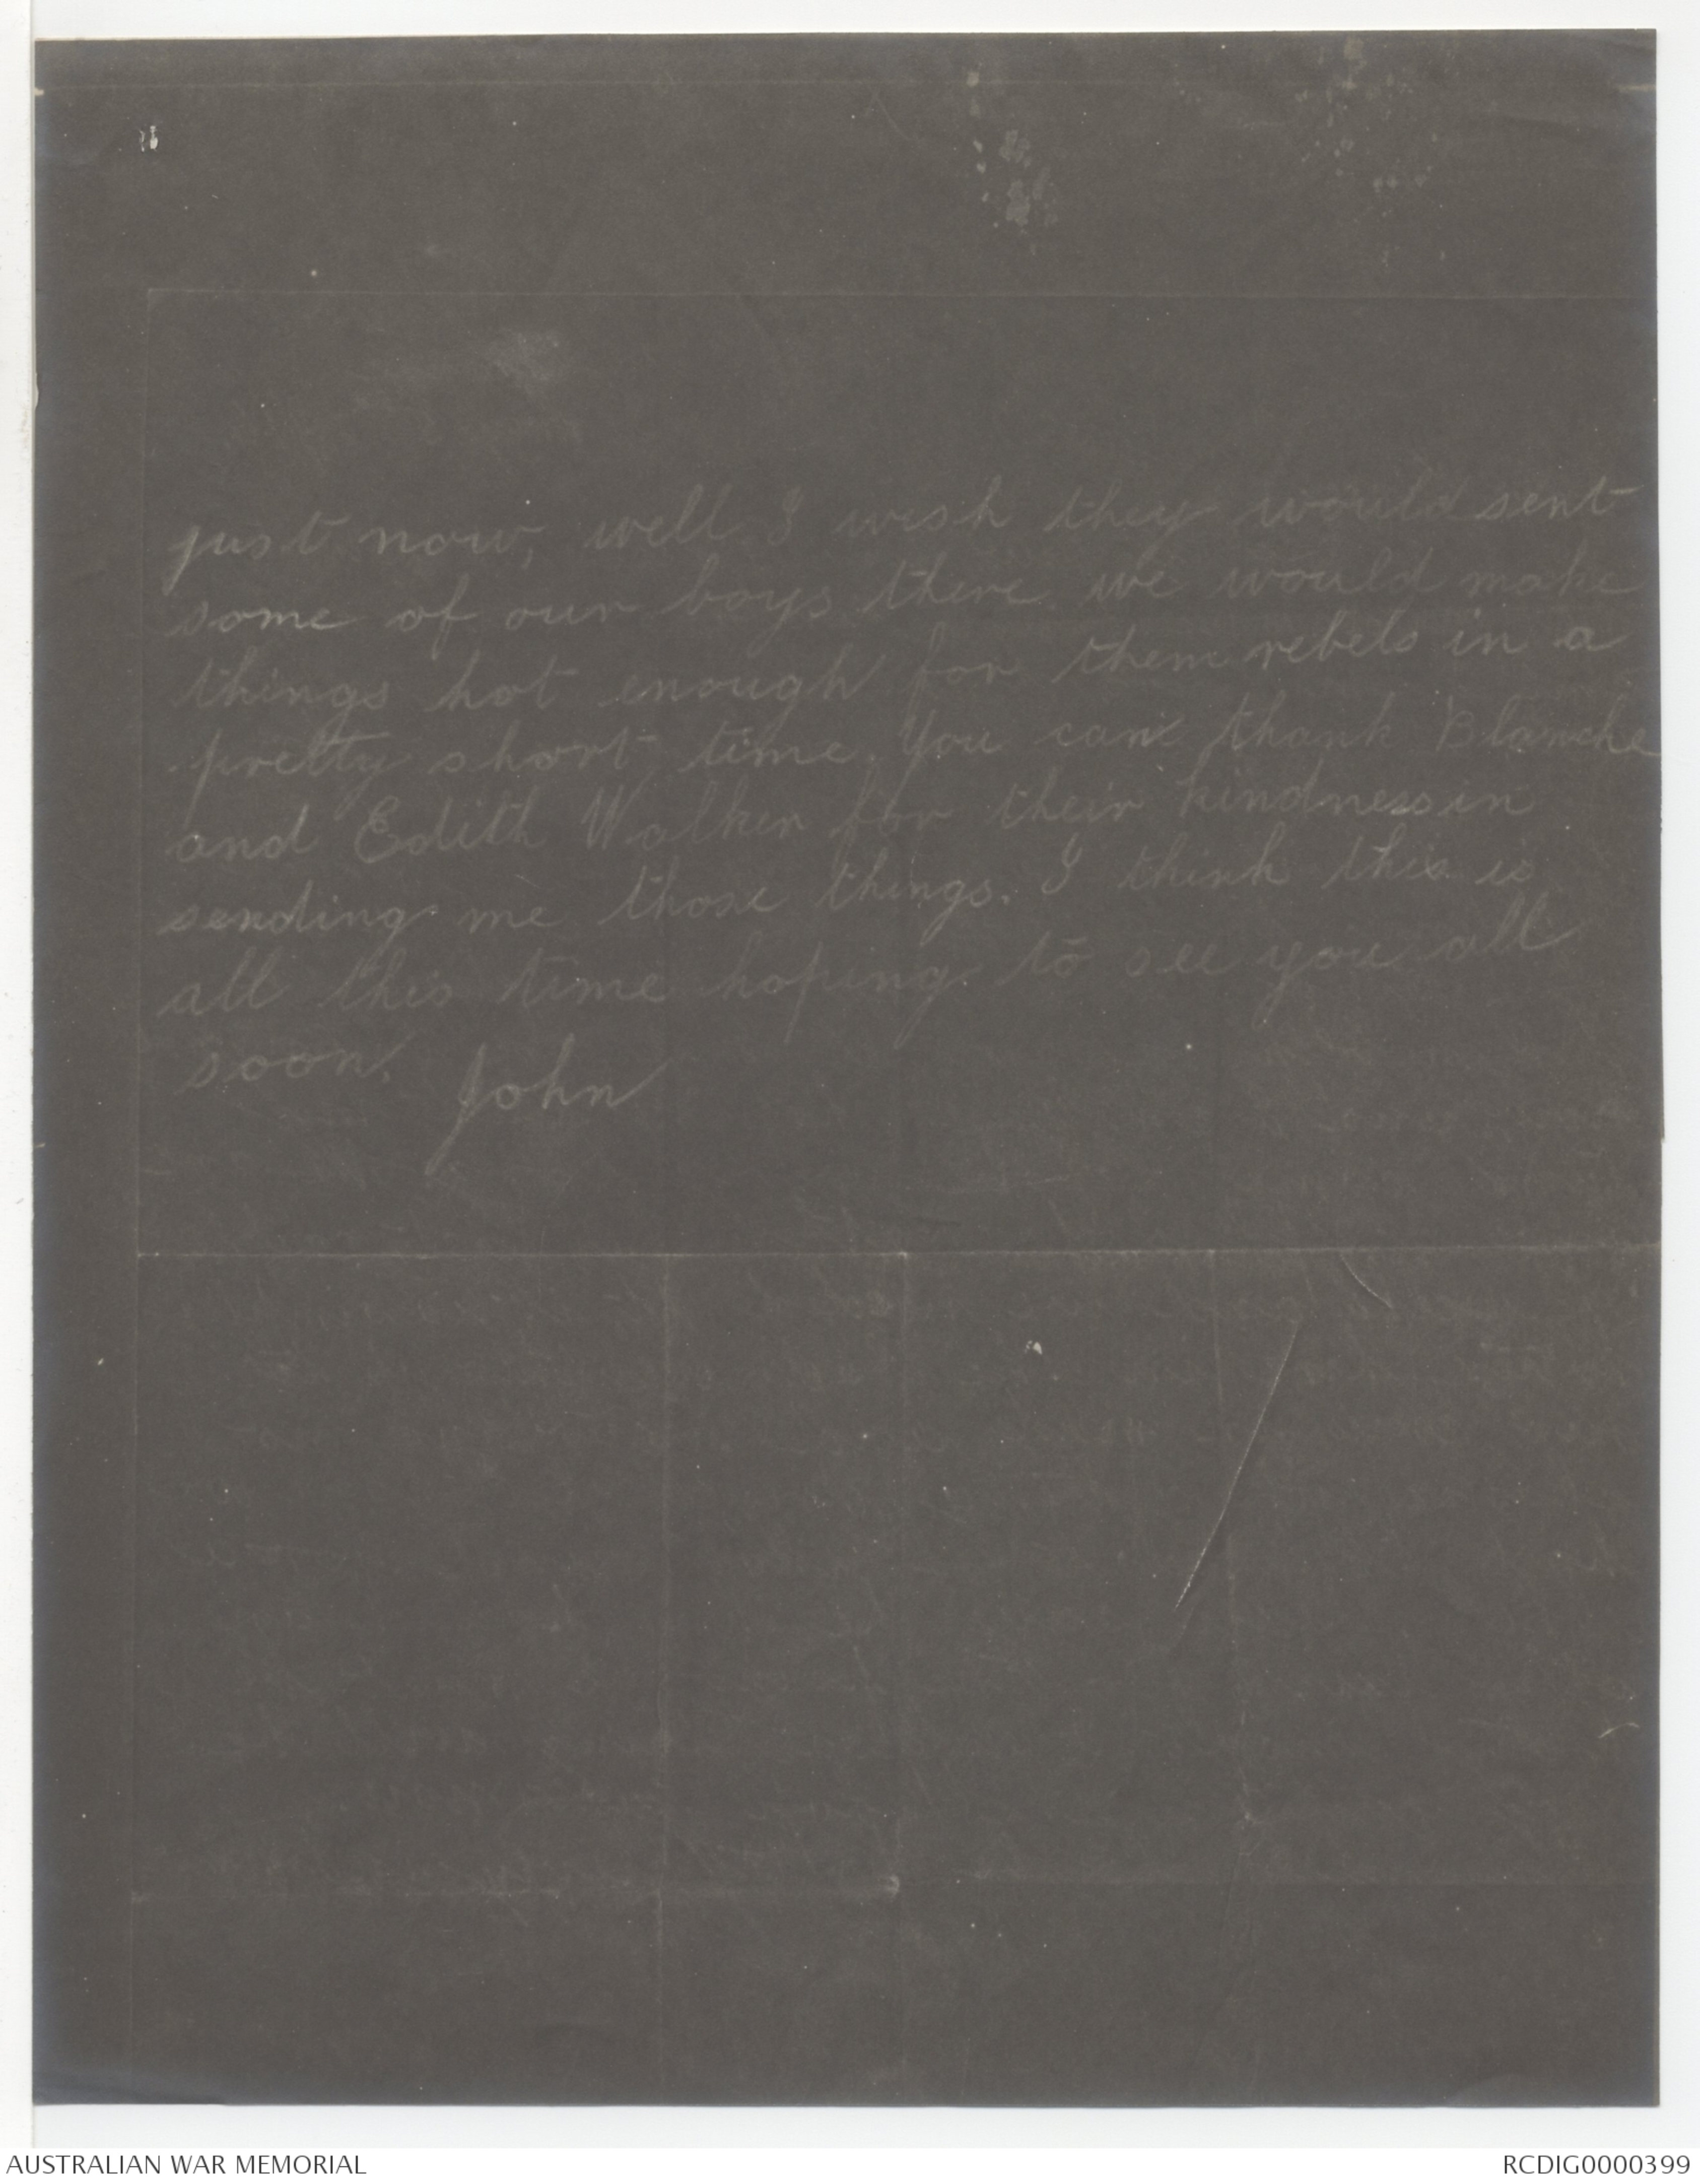 just now, well I wish they would sent
some of our boys there we would make
things hot enough for them rebels in a
pretty short time. You can thank Blanche
and Edith Walker for their kindness in
sending me those things. I think this is
all this time hoping to see you all
soon.
John
AUSTRALIAN WAR MEMORIAL
RCDIG0000399